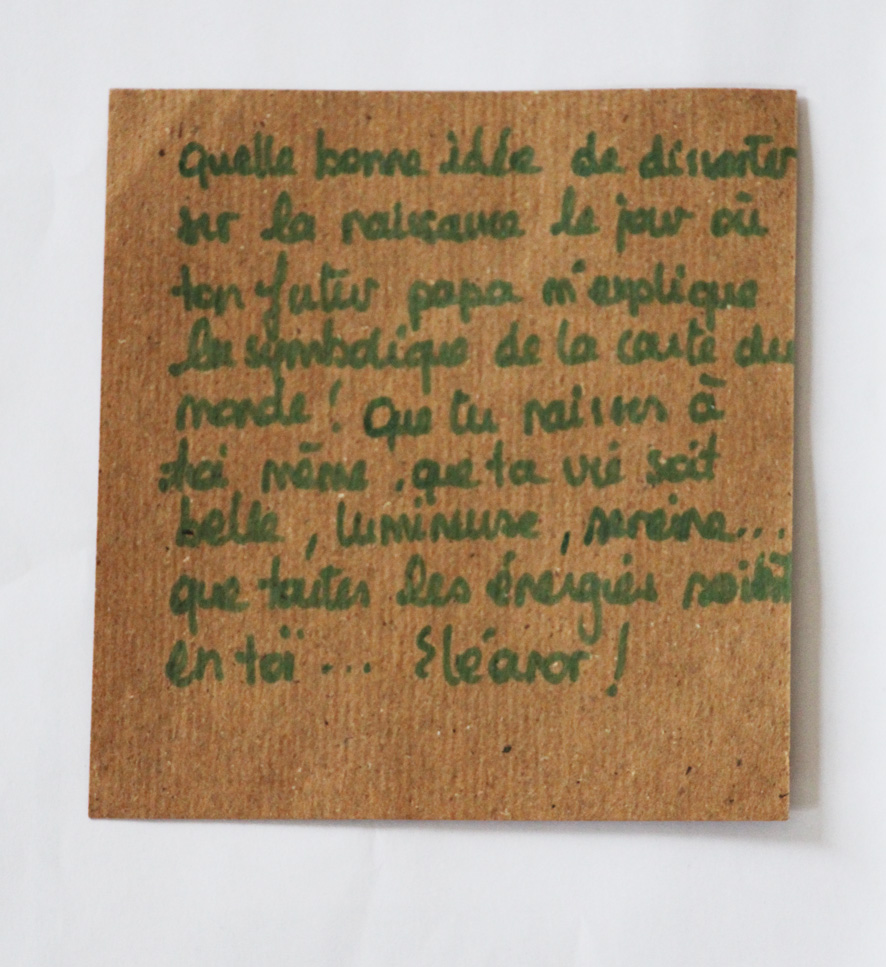 quelle bonne idée de disserter
sur la naissance le jour où
ton futur papa m'explique
la symbolique de la carte du
monde ! Que tu naisses à
toi même, que ta vie soit
belle, lumineuse, sereine...
que toutes les énergies soient
en toï ... Eléanor !